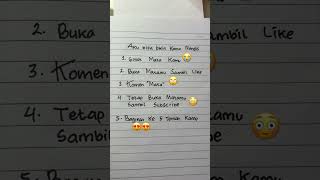 Aku bisa bikin Kamu Nangis
1. Gosok Mata Kamu 😳
2. Buka Matamu Sambil Like
3. Komen "Mata" 😳
4. Tetap Buka Matamu 😳
Sambil Subscribe
5. Bagikan Ke 5 Teman Kamu
😍😍
2. Buka
Sambil Like
3. Komen
4. Tetap
Sambil